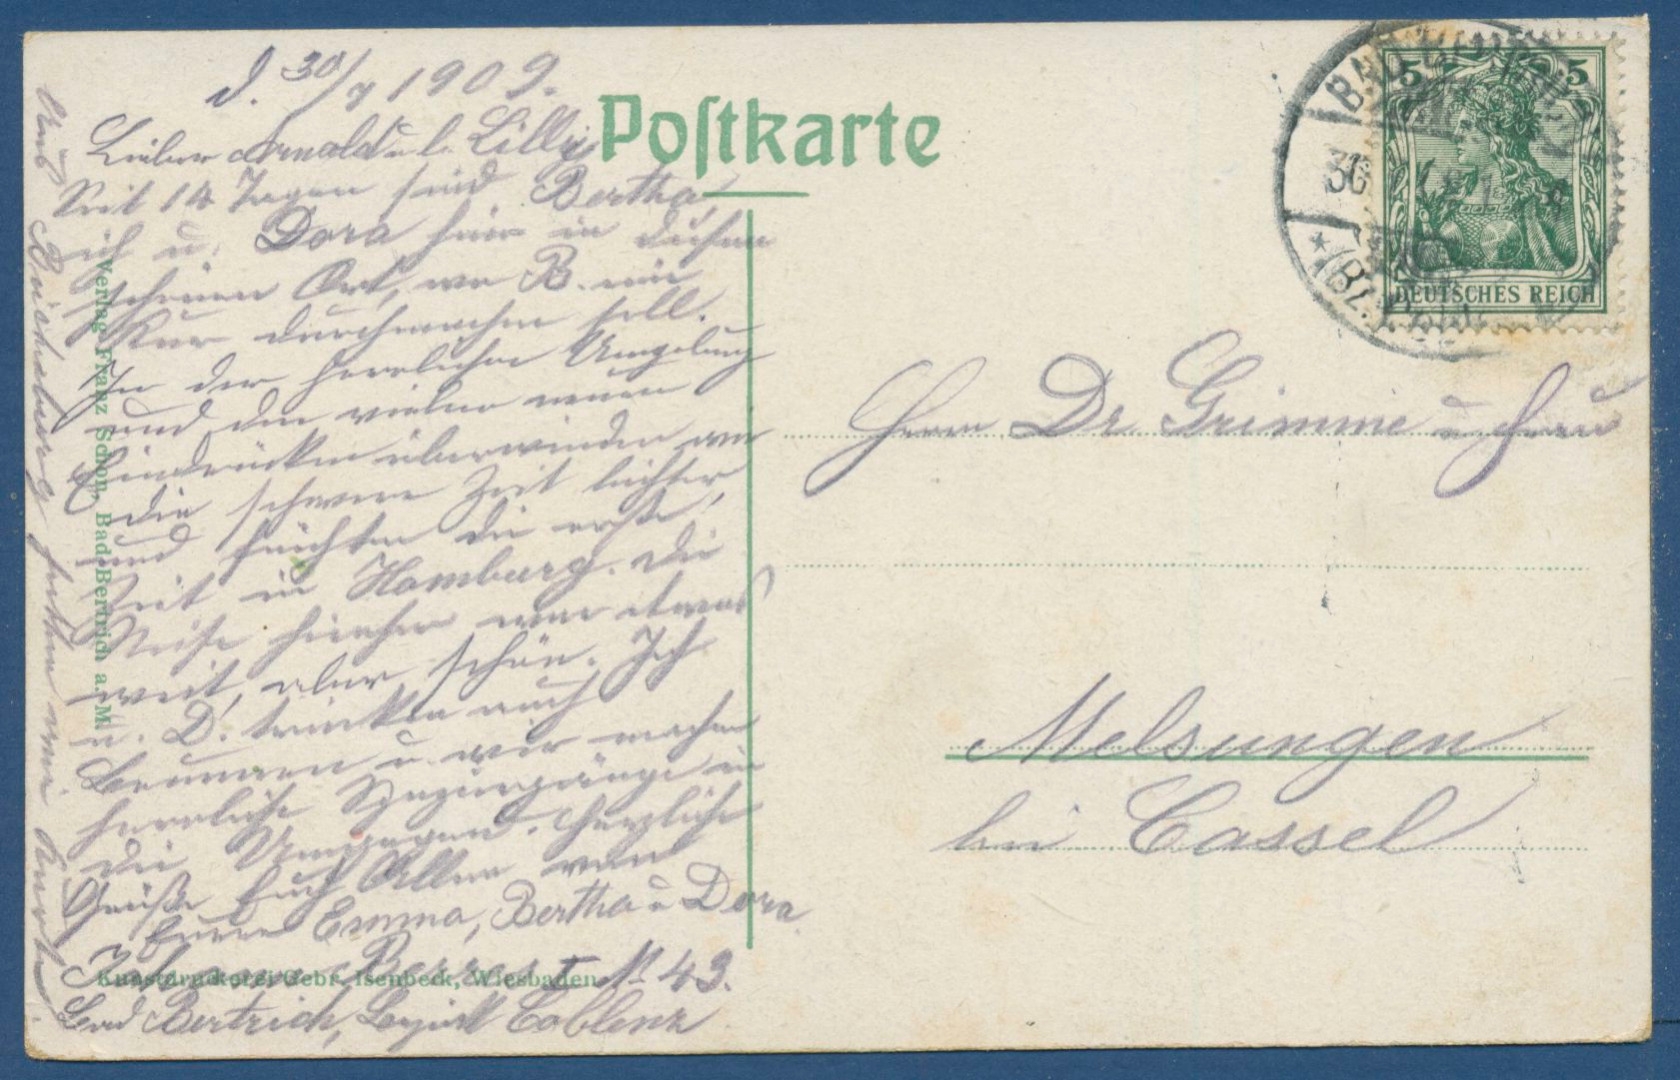 d. 30/7 1909.
Lieber Arnold u. l. Lilly
Seit 14 Tagen sind Bertha,
ich u. Dora hier in diesem
schönen Ort, wo B. eine
Kur durchmachen soll.
In der herrlichen Umgebung
und den vielen neuen
Eindrücken überwinden wir
die schwere Zeit leichter,
und fürchten die erste
Zeit in Hamburg. Die
Reise hierher war etwas
weit, aber schön. Ich
u. D. trinken auch
Brunnen u. wir machen
herrliche Spaziergänge in
die Umgegend. Herzliche
Grüße Euch Allen von
Eurer Emma, Bertha u Dora
No 43.
Bad Bertrich, Bezirk Coblenz
Postkarte
BAD BERTRICH
30
DEUTSCHES REICH
5 5
Herrn Dr Grimme u Frau
Melsungen
bei Cassel
Verlag Franz Schon, Bad Bertrich a. M.
Kunstdruckerei Gebr. Isenbeck, Wiesbaden